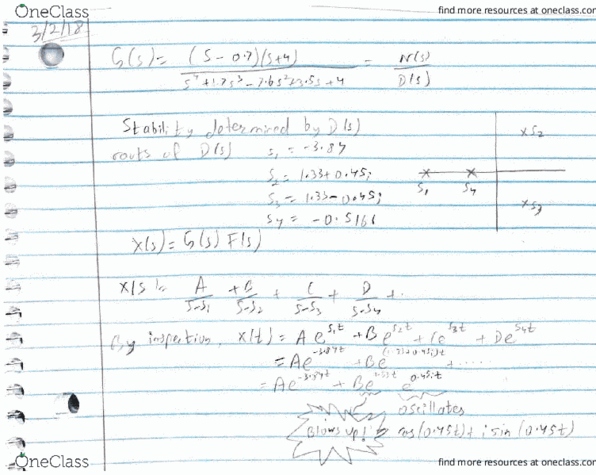 OneClass
find more resources at oneclass.com
3/2/18
G(s) = (s - 0.7)(s+4) / s⁴+1.7s³-7.6s²+3.5s+4 = N(s) / D(s)
Stability determined by D(s)
roots of D(s) s₁ = -3.87
s₂ = 1.33+0.45j
s₃ = 1.33-0.45j
s₄ = -0.5161
x s₂
s₁ s₄
x s₃
X(s) = G(s) F(s)
X(s) = A/s-s₁ + B/s-s₂ + C/s-s₃ + D/s-s₄ + ..
By inspection, x(t) = A e^s₁t + B e^s₂t + C e^s₃t + D e^s₄t
= A e^-3.87t + B e + .....
= A e + B e e^0.45jt
oscillates
Blows up! cos(0.45t) + i sin(0.45t)
OneClass
find more resources at oneclass.com